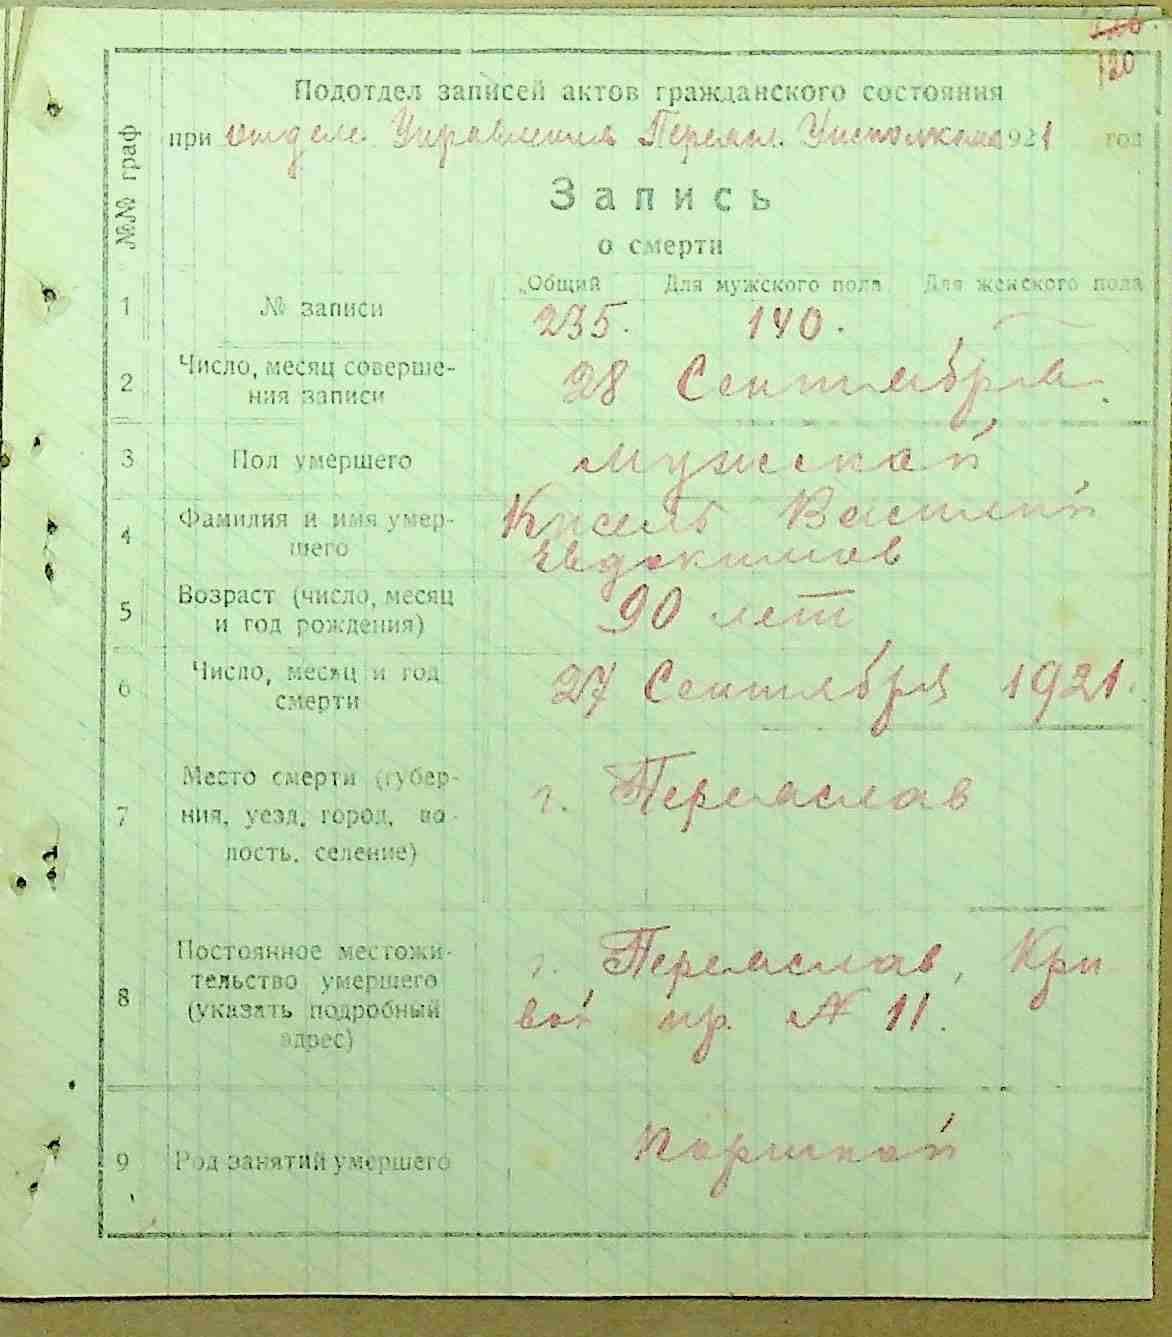 120
Подотдел записей актов гражданского состояния
при отделе Управления Переясл. Уисполкома 1921 год
№№ граф
Запись
о смерти
Общий Для мужского пола Для женского пола
1 № записи 235. 140. —
2 Число, месяц соверше-
ния записи 28 Сентября
3 Пол умершего мужской
4 Фамилия и имя умер-
шего Кисель Василий
Евдокимов
5 Возраст (число, месяц
и год рождения) 90 лет
6 Число, месяц и год
смерти 27 Сентября 1921.
7 Место смерти (губер-
ния, уезд, город, во-
лость, селение) г. Переяслав
8 Постоянное местожи-
тельство умершего
(указать подробный
адрес) г. Переяслав, Кри
вой пр. № 11.
9 Род занятий умершего